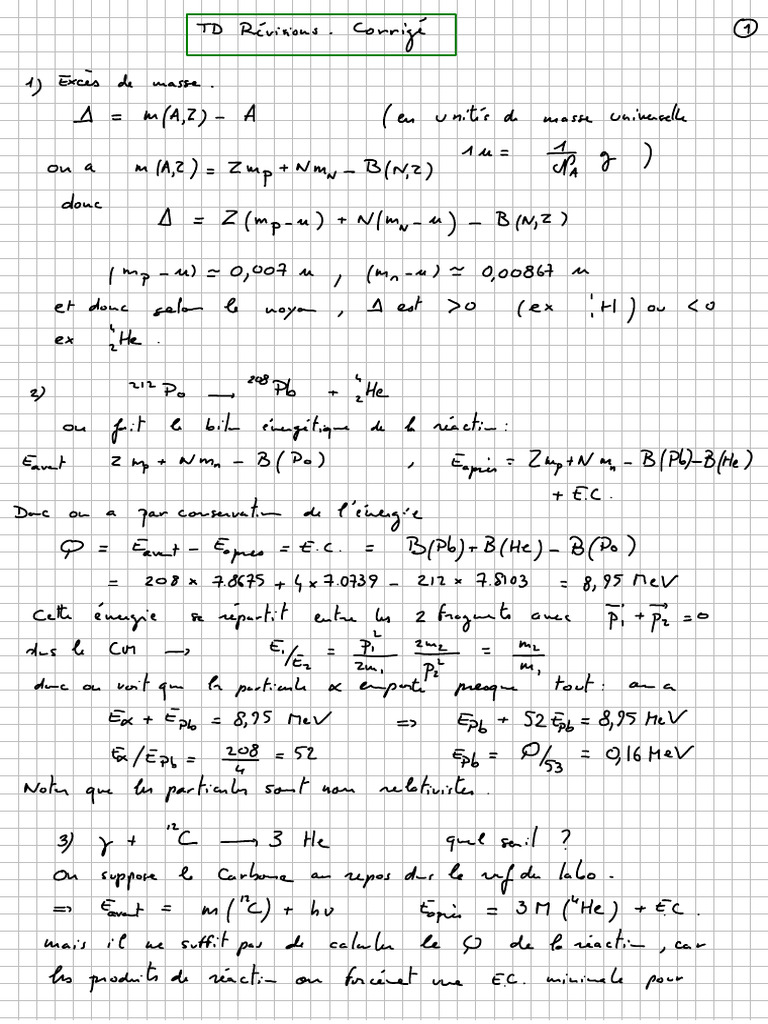 TD Révisions. Corrigé
1
1) Excès de masse.
Δ = m(A,Z) - A (en unités de masse universelle
on a m(A,Z) = Z mp + N mN - B(N,Z) 1u = 1/NA g )
donc
Δ = Z(mp-u) + N(mN-u) - B(N,Z)
(mp-u) ≃ 0,007 u , (mn-u) ≃ 0,00867 u
et donc selon le noyau, Δ est >0 (ex ¹₁H) ou <0
ex ⁴₂He.
2) ²¹²Po → ²⁰⁸Pb + ⁴₂He
on fait le bilan énergétique de la réaction :
Eavant Z mp + N mn - B(Po) , Eaprès = Z mp + N mn - B(Pb) - B(He)
+ E.C.
Donc on a par conservation de l'énergie
Q = Eavant - Eapres = E.C. = B(Pb) + B(He) - B(Po)
= 208 × 7.8675 + 4 × 7.0739 - 212 × 7.8103 = 8,95 MeV
Cette énergie se répartit entre les 2 fragments avec p⃗₁ + p⃗₂ = 0
dans le CM → E₁/E₂ = p₁²/2m₁ 2m₂/p₂² = m₂/m₁
donc on voit que la particule α emporte presque tout : on a
Eα + EPb = 8,95 MeV ⇒ EPb + 52 EPb = 8,95 MeV
Eα/EPb = 208/4 = 52 EPb = Q/53 = 0,16 MeV
Noter que les particules sont non relativistes.
3) γ + ¹²C → 3 He quel seuil ?
On suppose le Carbone au repos dans le ref du labo.
⇒ Eavant = m(¹²C) + hν Eaprès = 3M(⁴He) + E.C.
mais il ne suffit pas de calculer le Q de la réaction, car
les produits de réaction ont forcément une E.C. minimale pour